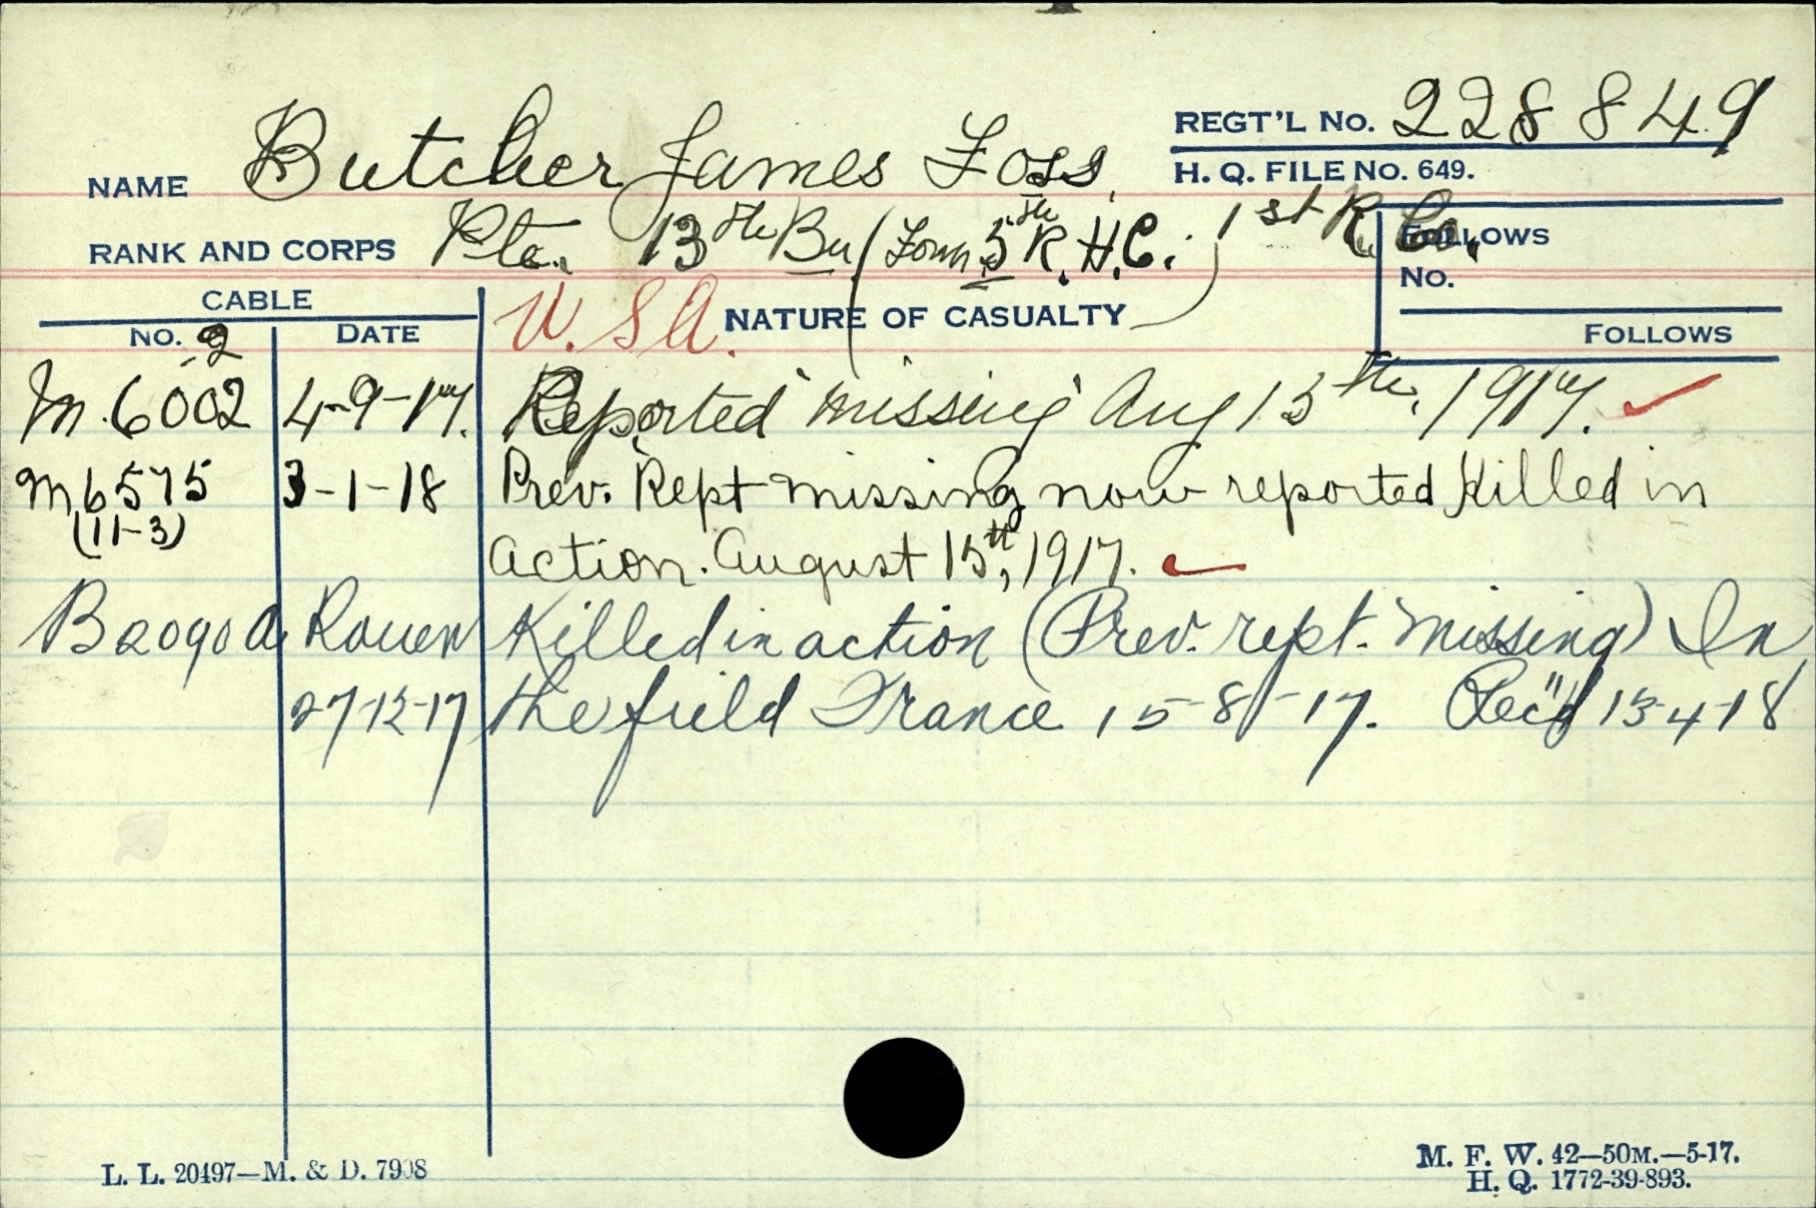 REGT'L No. 228849
NAME Butcher James Foss.
H. Q. FILE No. 649.
RANK AND CORPS Pte. 13th Bn (Form 5th R.H.C.) 1st R. Co.
FOLLOWS
No.
CABLE
U.S.A. NATURE OF CASUALTY
FOLLOWS
No. 2 DATE
M.6002 4-9-17. Reported "missing" Aug 15th, 1917.
M6575 3-1-18 Prev. Rept missing now reported Killed in
(11-3)
action. August 15th, 1917.
B2090a Rouen Killed in action (Prev. rept. missing) In
27-12-17 the field France 15-8-17. Rec'd 13-4-18
L. L. 20497—M. & D. 7908
M. F. W. 42—50M.—5-17.
H. Q. 1772-39-893.